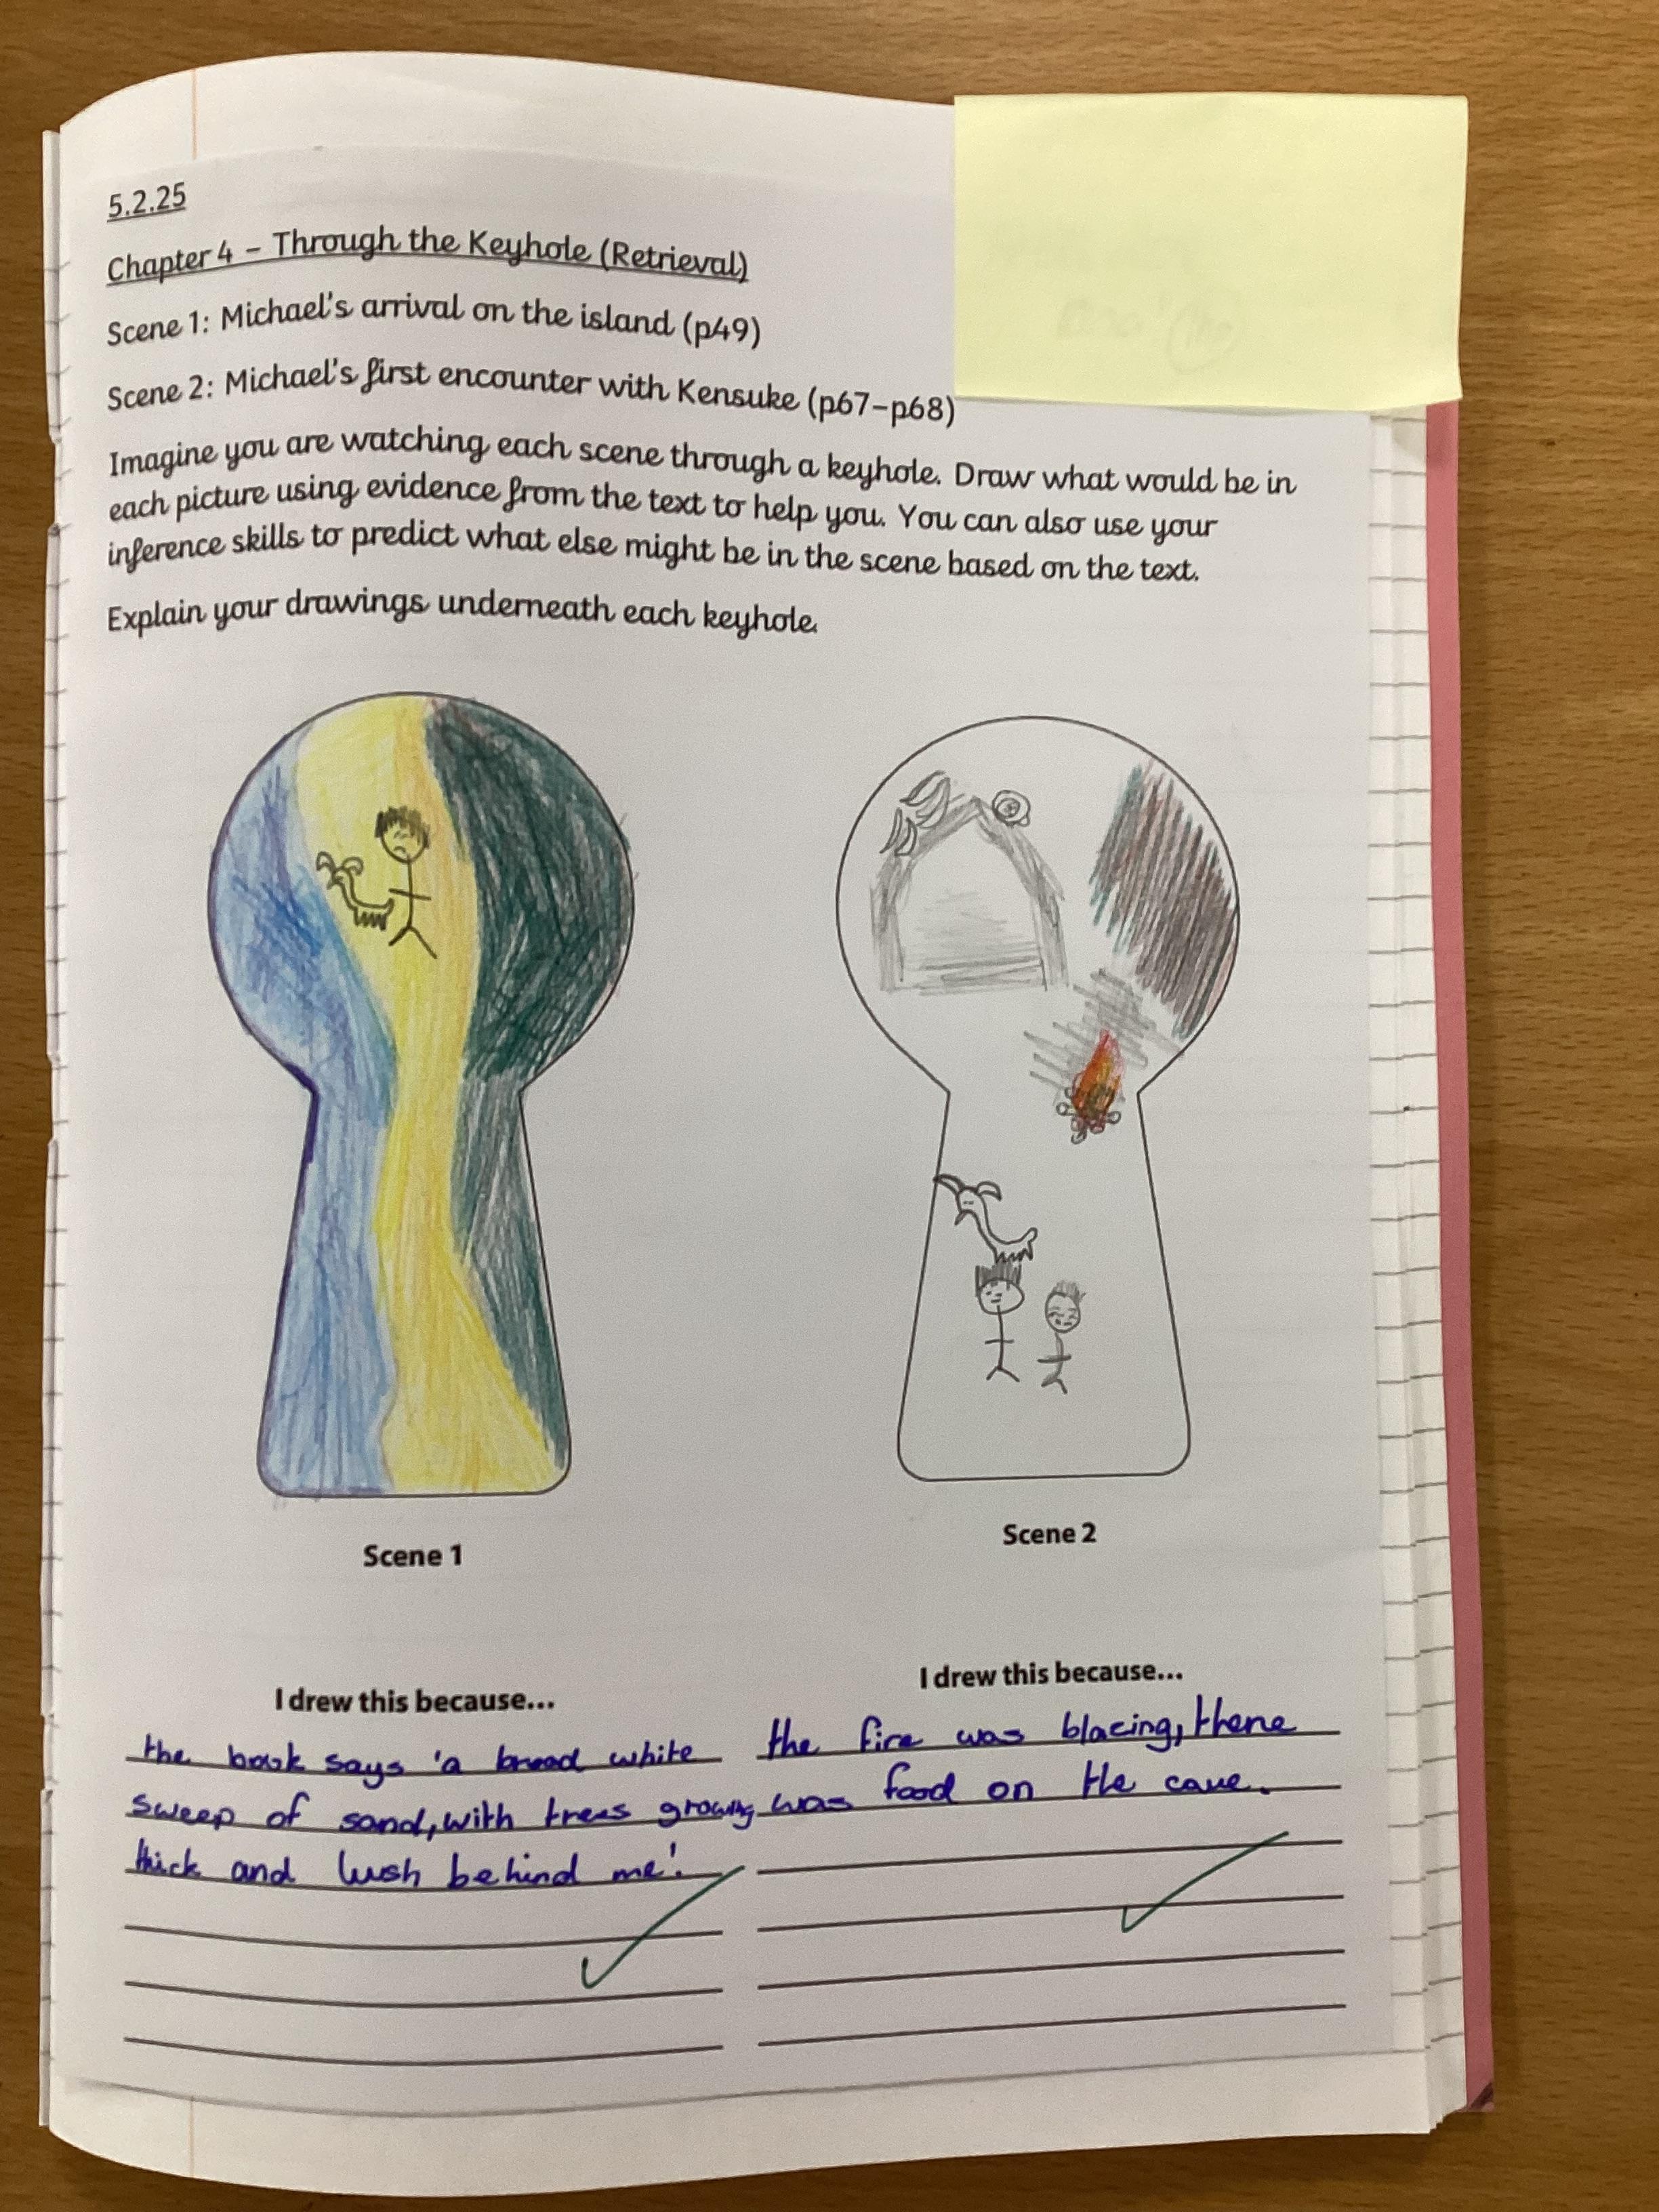 5.2.25
Chapter 4 – Through the Keyhole (Retrieval)
Scene 1: Michael's arrival on the island (p49)
Scene 2: Michael's first encounter with Kensuke (p67–p68)
Imagine you are watching each scene through a keyhole. Draw what would be in
each picture using evidence from the text to help you. You can also use your
inference skills to predict what else might be in the scene based on the text.
Explain your drawings underneath each keyhole.
Scene 1
I drew this because...
the book says 'a broad white
sweep of sand, with trees growing
thick and lush behind me'.
Scene 2
I drew this because...
the fire was blacing, there
was food on the cave.